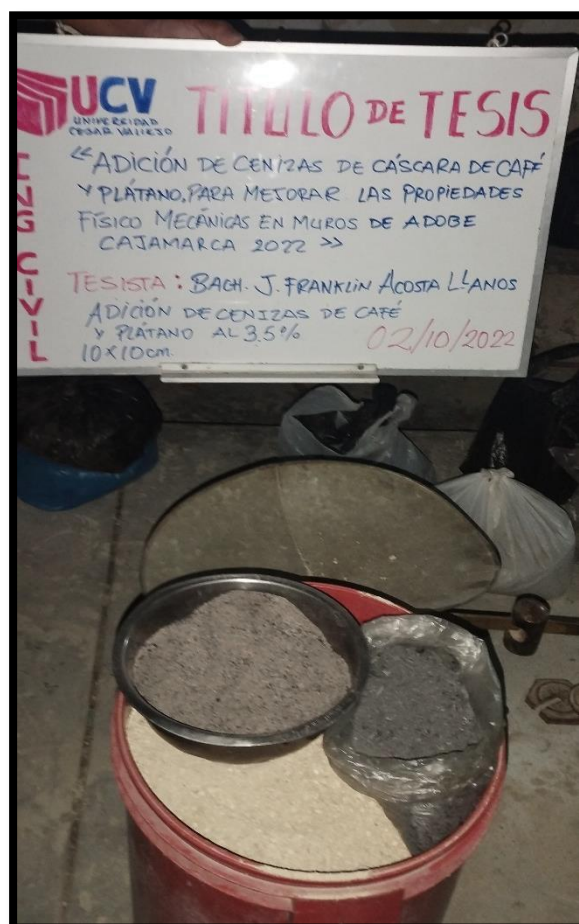 UCV
UNIVERSIDAD
CESAR VALLEJO
TITULO DE TESIS
ING CIVIL
"ADICIÓN DE CENIZAS DE CÁSCARA DE CAFÉ
Y PLÁTANO, PARA MEJORAR LAS PROPIEDADES
FÍSICO MECÁNICAS EN MUROS DE ADOBE
CAJAMARCA 2022 >>
TESISTA: BACH. J. FRANKLIN ACOSTA LLANOS
ADICIÓN DE CENIZAS DE CAFÉ
Y PLÁTANO AL 3.5%
10x10cm
02/10/2022